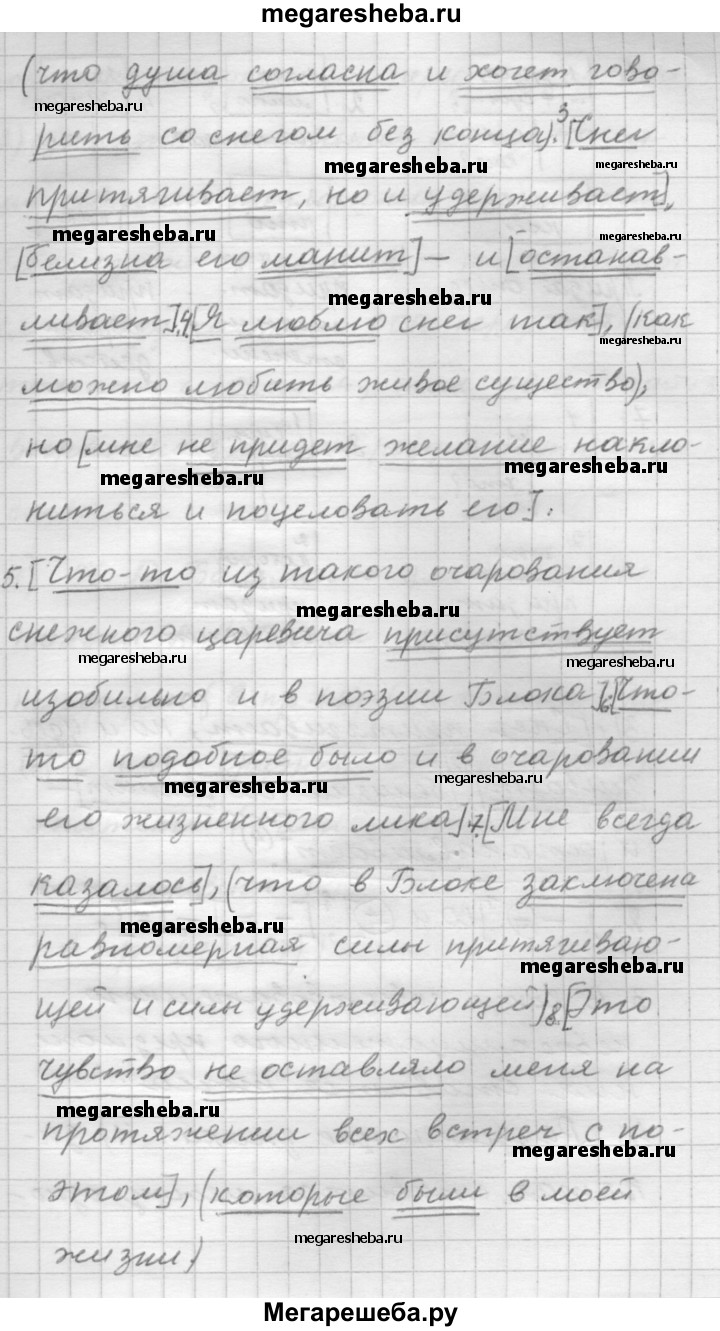 megaresheba.ru
(что душа согласна и хочет гово-
megaresheba.ru
рить со снегом без конца). 3. [Снег
megaresheba.ru megaresheba.ru
притягивает, но и удерживает],
megaresheba.ru
[белизна его манит] – и [останав-
ливает]. 4. [Я люблю снег так], (как
можно любить живое существо),
но [мне не придет желание накло-
megaresheba.ru megaresheba.ru
ниться и поцеловать его].
5. [Что-то из такого очарования
megaresheba.ru
снежного царевича присутствует
megaresheba.ru megaresheba.ru
изобильно и в поэзии Блока]. 6. [Что-
то подобное было и в очаровании
megaresheba.ru megaresheba.ru
его жизненного лика]. 7. [Мне всегда
казалось], (что в Блоке заключена
megaresheba.ru
равномерная силы притягиваю-
megaresheba.ru
щей и силы удерживающей) 8. [Это
чувство не оставляло меня на
megaresheba.ru
протяжении всех встреч с по-
megaresheba.ru
этом], (которые были в моей
megaresheba.ru
жизни)
Мегарешеба.ру